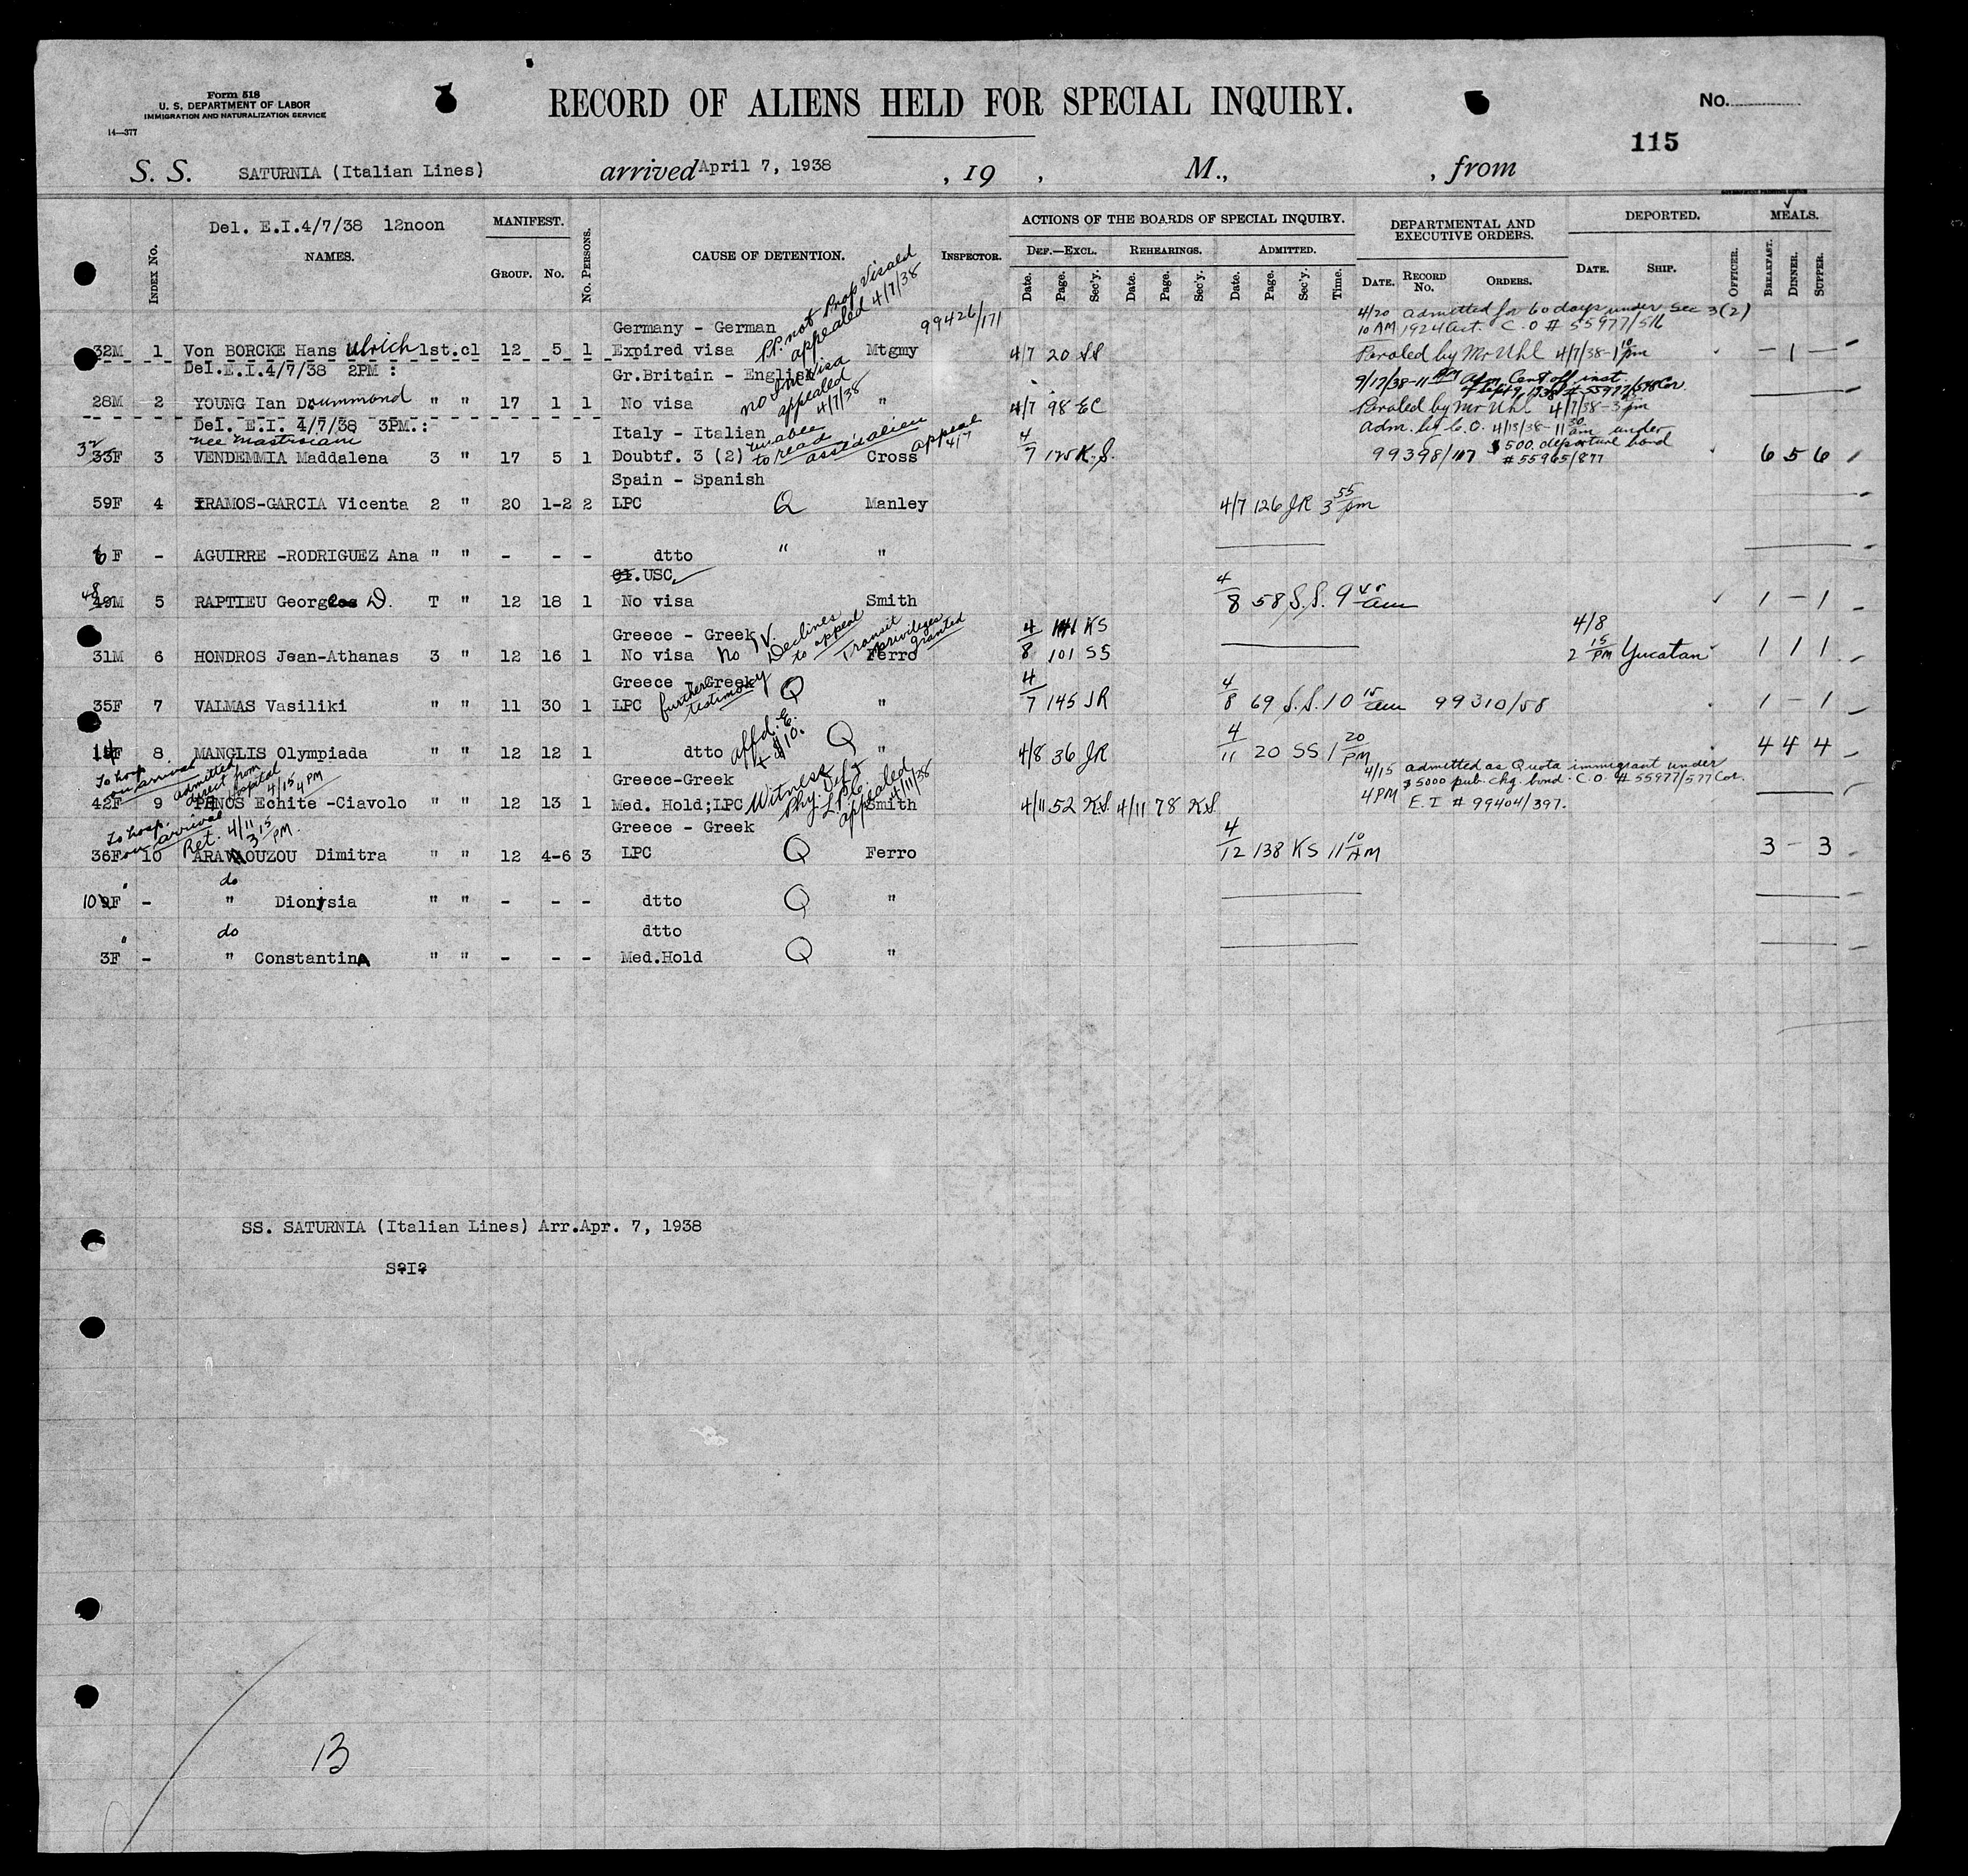 Form 518
U. S. DEPARTMENT OF LABOR
IMMIGRATION AND NATURALIZATION SERVICE
14—377
RECORD OF ALIENS HELD FOR SPECIAL INQUIRY.
No.
115
S. S. SATURNIA (Italian Lines) arrived April 7, 1938 , 19 , M., , from
Del. E.I.4/7/38 12noon
MANIFEST. ACTIONS OF THE BOARDS OF SPECIAL INQUIRY. DEPARTMENTAL AND EXECUTIVE ORDERS. DEPORTED. MEALS.
Index No. NAMES. GROUP. No. No. Persons. CAUSE OF DETENTION. INSPECTOR. DEF.—EXCL. REHEARINGS. ADMITTED.
Date. Page. Sec'y. Date. Page. Sec'y. Date. Page. Sec'y. Time. DATE. RECORD No. ORDERS. DATE. SHIP. OFFICER. BREAKFAST. DINNER. SUPPER.
Germany - German P.P. not Prop Visaed appealed 4/7/38 99426/171 4/20 admitted for 60 days under Sec 3(2)
10 AM 1924 Act. C.O # 55977/516
32M 1 Von BORCKE Hans Ulrich 1st.cl 12 5 1 Expired visa Mtgmy 4/7 20 SS Paroled by Mr Uhl 4/7/38-1 10 pm - 1 -
Del.E.I.4/7/38 2PM :
Gr.Britain - English no Im Visa appealed 4/7/38
28M 2 YOUNG Ian Drummond " " 17 1 1 No visa " 4/7 98 EC Paroled by Mr Uhl 4/7/38-3 pm
Del. E.I. 4/7/38 3PM.:
nee Mastrisiani Italy - Italian unable to read assed alien appeal 4/7 Adm. by C.O. 4/13/38-11 30 am under
32 33F 3 VENDEMMIA Maddalena 3 " 17 5 1 Doubtf. 3 (2) Cross 4/7 125 K.S. 99398/117 $500. departure bond # 55965/877 6 5 6
Spain - Spanish
59F 4 RAMOS-GARCIA Vicenta 2 " 20 1-2 2 LPC Q Manley 4/7 126 JR 3 55 pm
6 F - AGUIRRE -RODRIGUEZ Ana " " - - - dtto " "
Cl.USC
48 49M 5 RAPTIEU George D. T " 12 18 1 No visa Smith 4/8 58 S.S. 9 45 am 1 - 1
Greece - Greek No I V. Declines to appeal Transit privileges granted 4/8 141 KS 4/8
31M 6 HONDROS Jean-Athanas 3 " 12 16 1 No visa Ferro 101 SS 2 15 PM Yucatan 1 1 1
Greece - Greek further testimony
35F 7 VALMAS Vasiliki " " 11 30 1 LPC Q " 4/7 145 JR 4/8 69 S.S. 10 15 am 99310/58 1 - 1
8 MANGLIS Olympiada " " 12 12 1 dtto affd. E. + $10. Q " 4/8 36 JR 4/11 20 SS 1 20 PM 4 4 4
To hosp on arrival admitted direct from Hospital 4/15 4 PM
Greece-Greek Witness Phy. Def & L.P.C. appealed 4/11/38 4/15 admitted as Quota immigrant under
$5000 pub. chg. bond. C.O. # 55977/577 Cor.
42F 9 PANOS Echite -Ciavolo " " 12 13 1 Med. Hold;LPC Smith 4/11 52 KS 4/11 78 KS. 4PM E.I # 99404/397.
To hosp. on arrival Ret. 4/11 3 15 PM.
Greece - Greek
36F 10 ARAVAOUZOU Dimitra " " 12 4-6 3 LPC Q Ferro 4/12 138 KS 11 10 AM 3 - 3
do
10 9F - " Dionysia " " - - - dtto Q "
do dtto
3F - " ConstantinA " " - - - Med.Hold Q "
SS. SATURNIA (Italian Lines) Arr.Apr. 7, 1938
S?I?
13